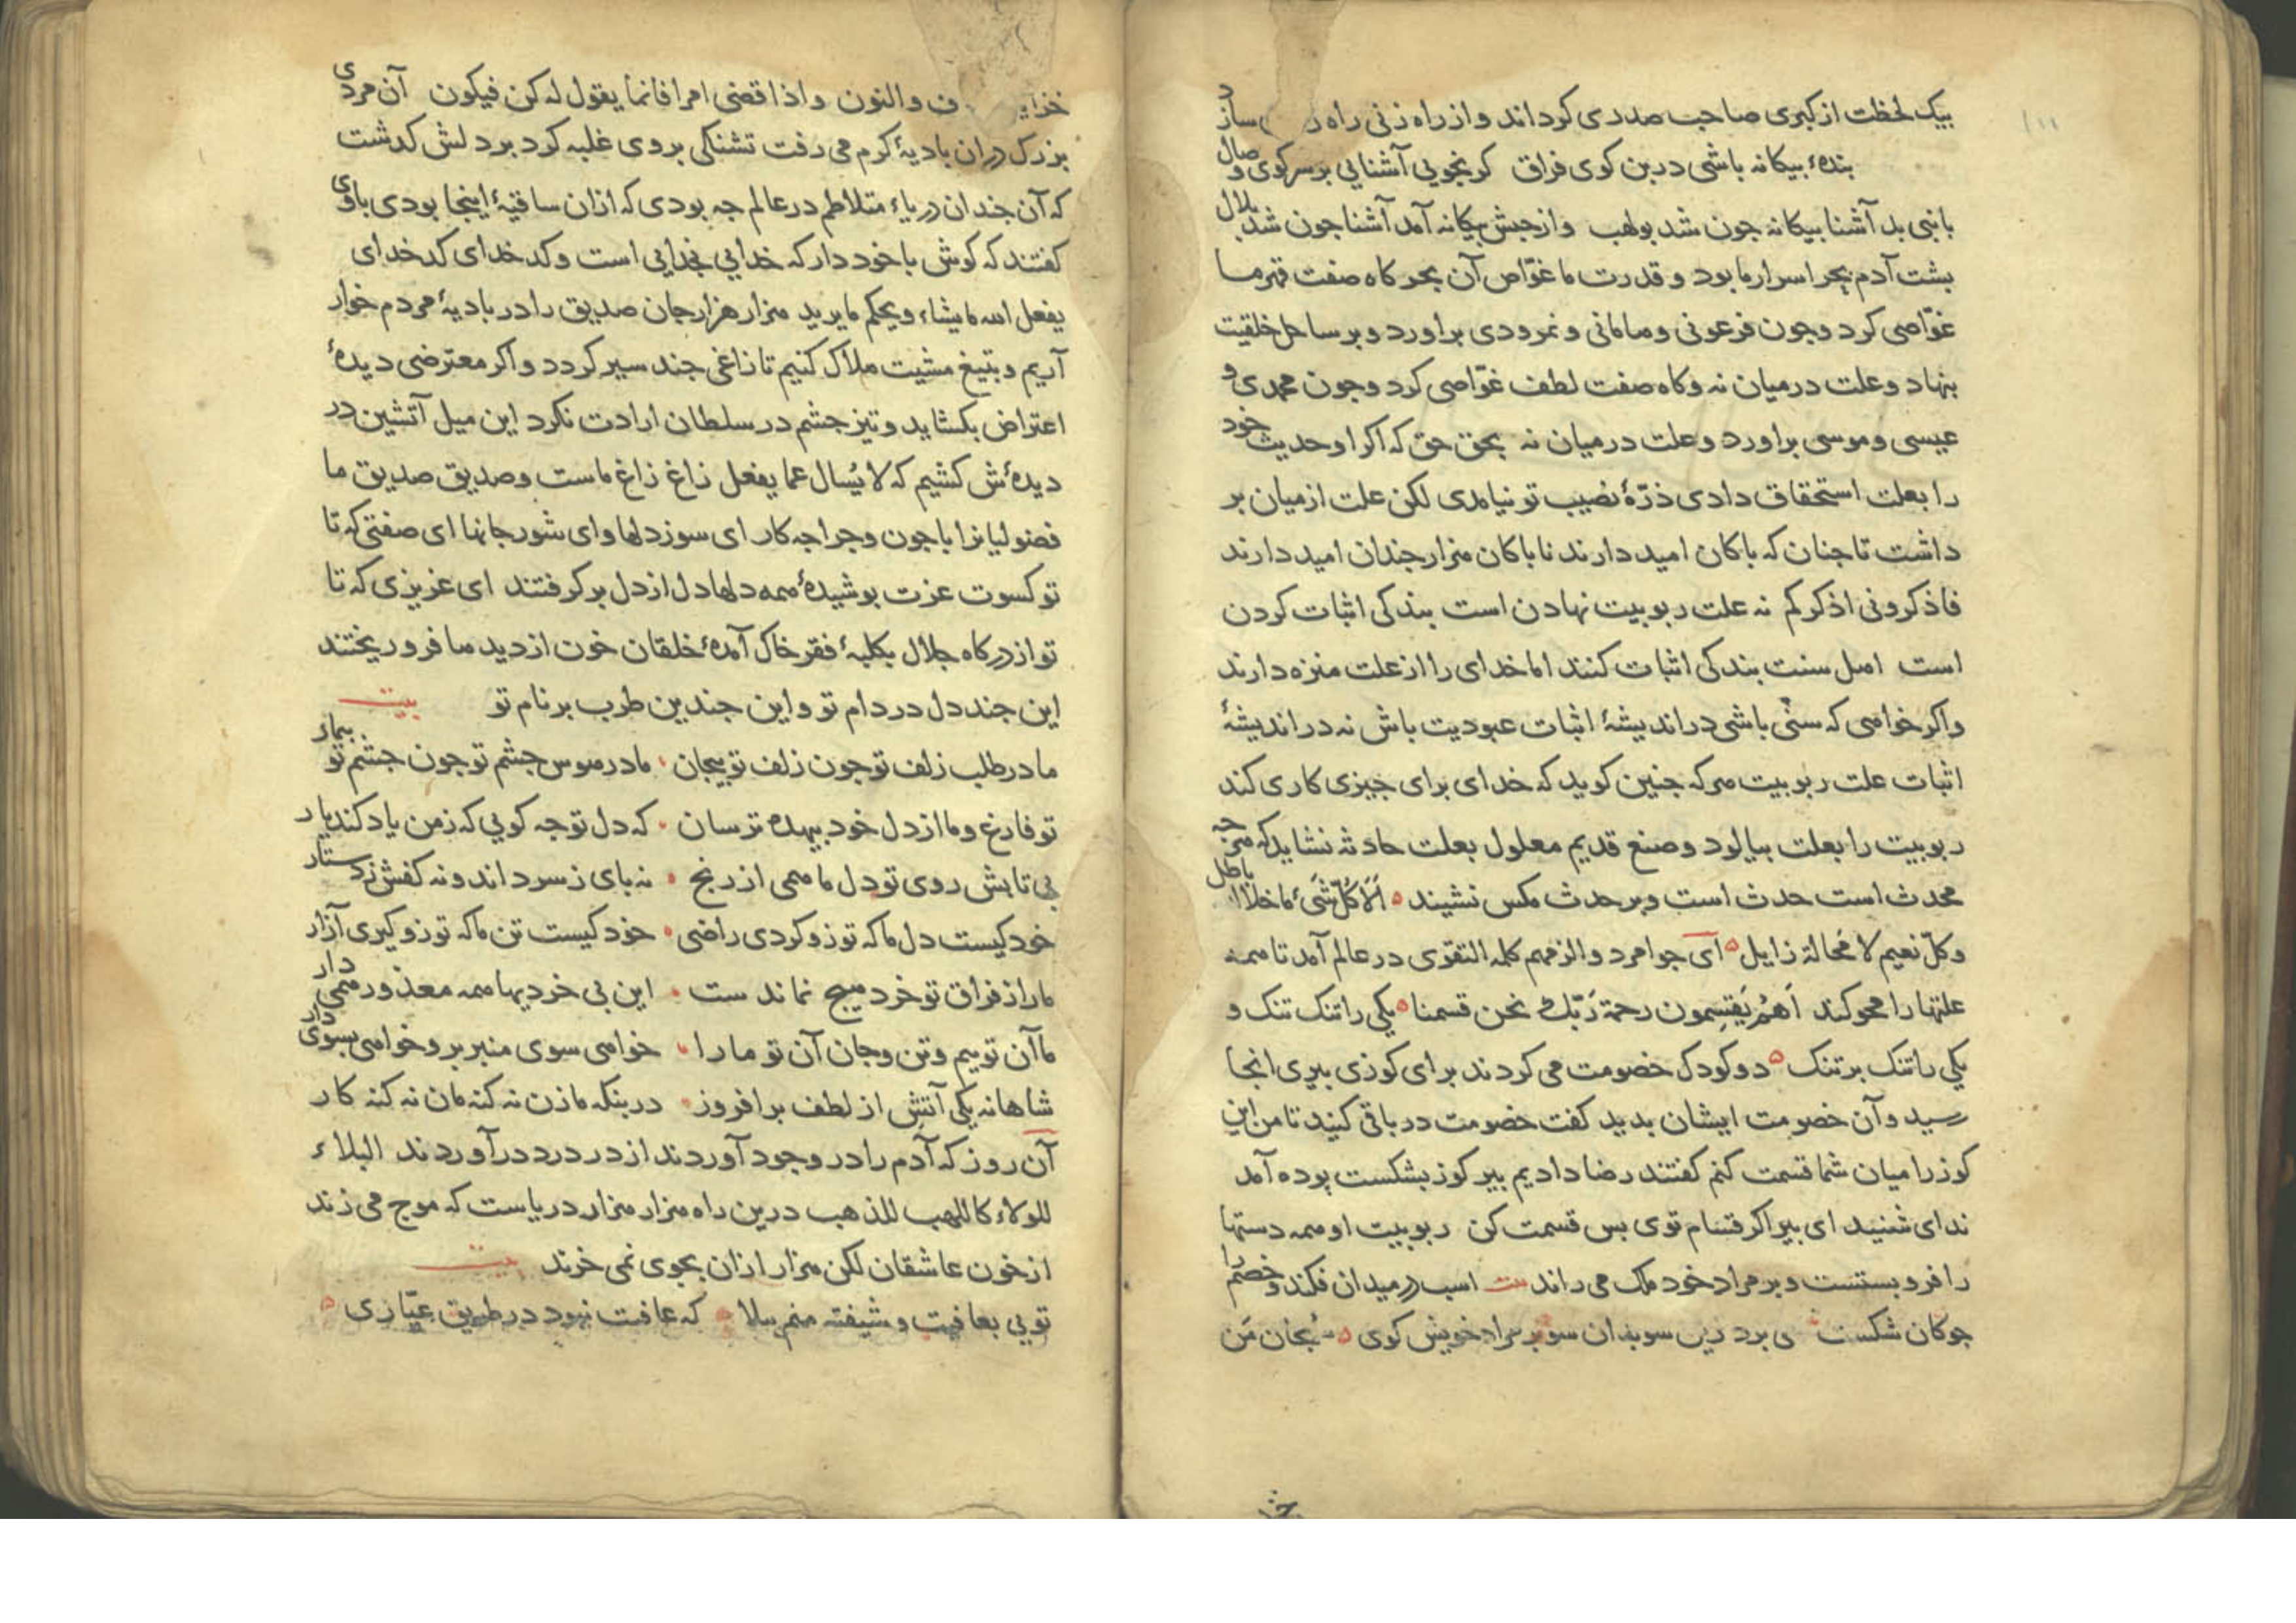 بیک لحظت از کبری صاحب صدری کرداند و از راه زنی راه سازد
بندهٔ بیکانه باشی درین کوی فراق کر نجویی آشنایی بر سر کوی وصال
با نبی بد آشنا بیکانه جون شد بولهب وز حبش بیکانه آمد آشنا جون شد بلال
بشت آدم بحر اسرار ما بود و قدرت ما غوّاص آن بحر کاه صفت قهر ما
غوّاصی کرد و جون فرعونی و هامانی و نمرودی براورد و بر ساحل خلقیت
بنهاد و علت درمیان نه و کاه صفت لطف غوّاصی کرد و جون محمدی و
عیسی و موسی براورد و علت درمیان نه بحق حق که اکر او حدیث خود
را بعلت استحقاق دادی ذرّهٔ نصیب تو نیامدی لکن علت از میان بر
داشت تا جنان که باکان امید دارند ناباکان هزار جندان امید دارند
فاذکرونی اذکرکم نه علت ربوبیت نهادن است بندکی اثبات کردن
است اهل سنت بندکی اثبات کنند اما خدای را از علت منزه دارند
واکر خواهی که سنّی باشی در اندیشهٔ اثبات عبودیت باش نه در اندیشهٔ
اثبات علت ربوبیت هرکه جنین کوید که خدای برای جیزی کاری کند
ربوبیت را بعلت بیالود و صنع قدیم معلول بعلت حادثه نشاید که هرجه
محدث است حدث است و بر حدث مکس نشیند ألا کلّ شیء ما خلا الله باطل
وکلّ نعیم لا محالة زایل ای جوامرد والزمهم کلمه التقوی در عالم آمد تا همه
علتها را محو کند اهم یقسمون رحمة ربّک نحن قسمنا یکی را تنک تنک و
یکی را تنک بر تنک دو کودک خصومت می کردند برای کوزی بیری انجا
رسید و آن خصومت ایشان بدید کفت خصومت در باقی کنید تا من این
کوز را میان شما قسمت کنم کفتند رضا دادیم بیر کوز بشکست بوده آمد
ندای شنید ای بیر اکر قسّام توی بس قسمت کن ربوبیت او همه دستها
را فرو بستست و بر مراد خود ملک می راند بیت اسب در میدان فکند و خصم را
جوکان شکست ی برد بر مراد خویش کوی سبحان من
خزاین ف والنون و اذا قضی امرا فانما یقول له کن فیکون آن مردی
بزرک در ان بادیهٔ کرم می رفت تشنکی بر وی غلبه کرد بر دلش کدشت
که آن جندان دریاء متلاطم در عالم جه بودی که ازان ساقیهٔ اینجا بودی با وی
کفتند که کوش با خود دار که خدایی خدایی است و کدخدای کدخدای
یفعل الله ما یشاء و یحکم ما یرید هزار هزار جان صدیق را در بادیهٔ مردم خوار
آریم و بتیغ مشیت هلاک کنیم تا زاغی جند سیر کردد و اکر معترضی دیدهٔ
اعتراض بکشاید و تیز جشم در سلطان ارادت نکرد این میل آتشین در
دیده‌ٔش کشیم که لا یُسال عما یفعل زاغ زاغ ماست و صدیق صدیق ما
فضولیانرا با جون و جرا جه کار ای سوز دلها و ای شور جانها ای صفتی که تا
تو کسوت عزت بوشیدهٔ همه دلها دل از دل برکرفتند ای عزیزی که تا
تو از درکاه جلال بکلبهٔ فقر خاک آمدهٔ خلقان خون از دیدها فرو ریختند
این جند دل در دام تو و این جندین طرب بر نام تو بیت
ما در طلب زلف تو جون زلف تو بیجان ما در هوس جشم تو جون جشم تو بیمار
تو فارغ و ما از دل خود بیهده ترسان که دل تو جه کویی که زمن یاد کند یار
بی تابش روی تو دل ما همی از رنج نه بای ز سر داند و نه کفش ز دستار
خود کیست دل ما که تو زو کردی راضی خود کیست تن ما که تو زو کیری آزار
ما را ز فراق تو خرد هیج نماند ست این بی خردیها همه معذور همی دار
ما آن توییم و تن و جان آن تو ما را خواهی سوی منبر بر و خواهی بسوی دار
شاهانه یکی آتش از لطف برافروز در بنکه ما زن نه کنه مان نه کنه کار
آن روز که آدم را در وجود آوردند از در درد درآوردند البلاء
للولاء کاللهب للذهب درین راه هزار هزار دریاست که موج می زند
از خون عاشقان لکن هزار ازان بجوی نمی خرند بیت
تویی بعافیت و شیفته منم ببلا که عافیت نبود در طریق عیّاری